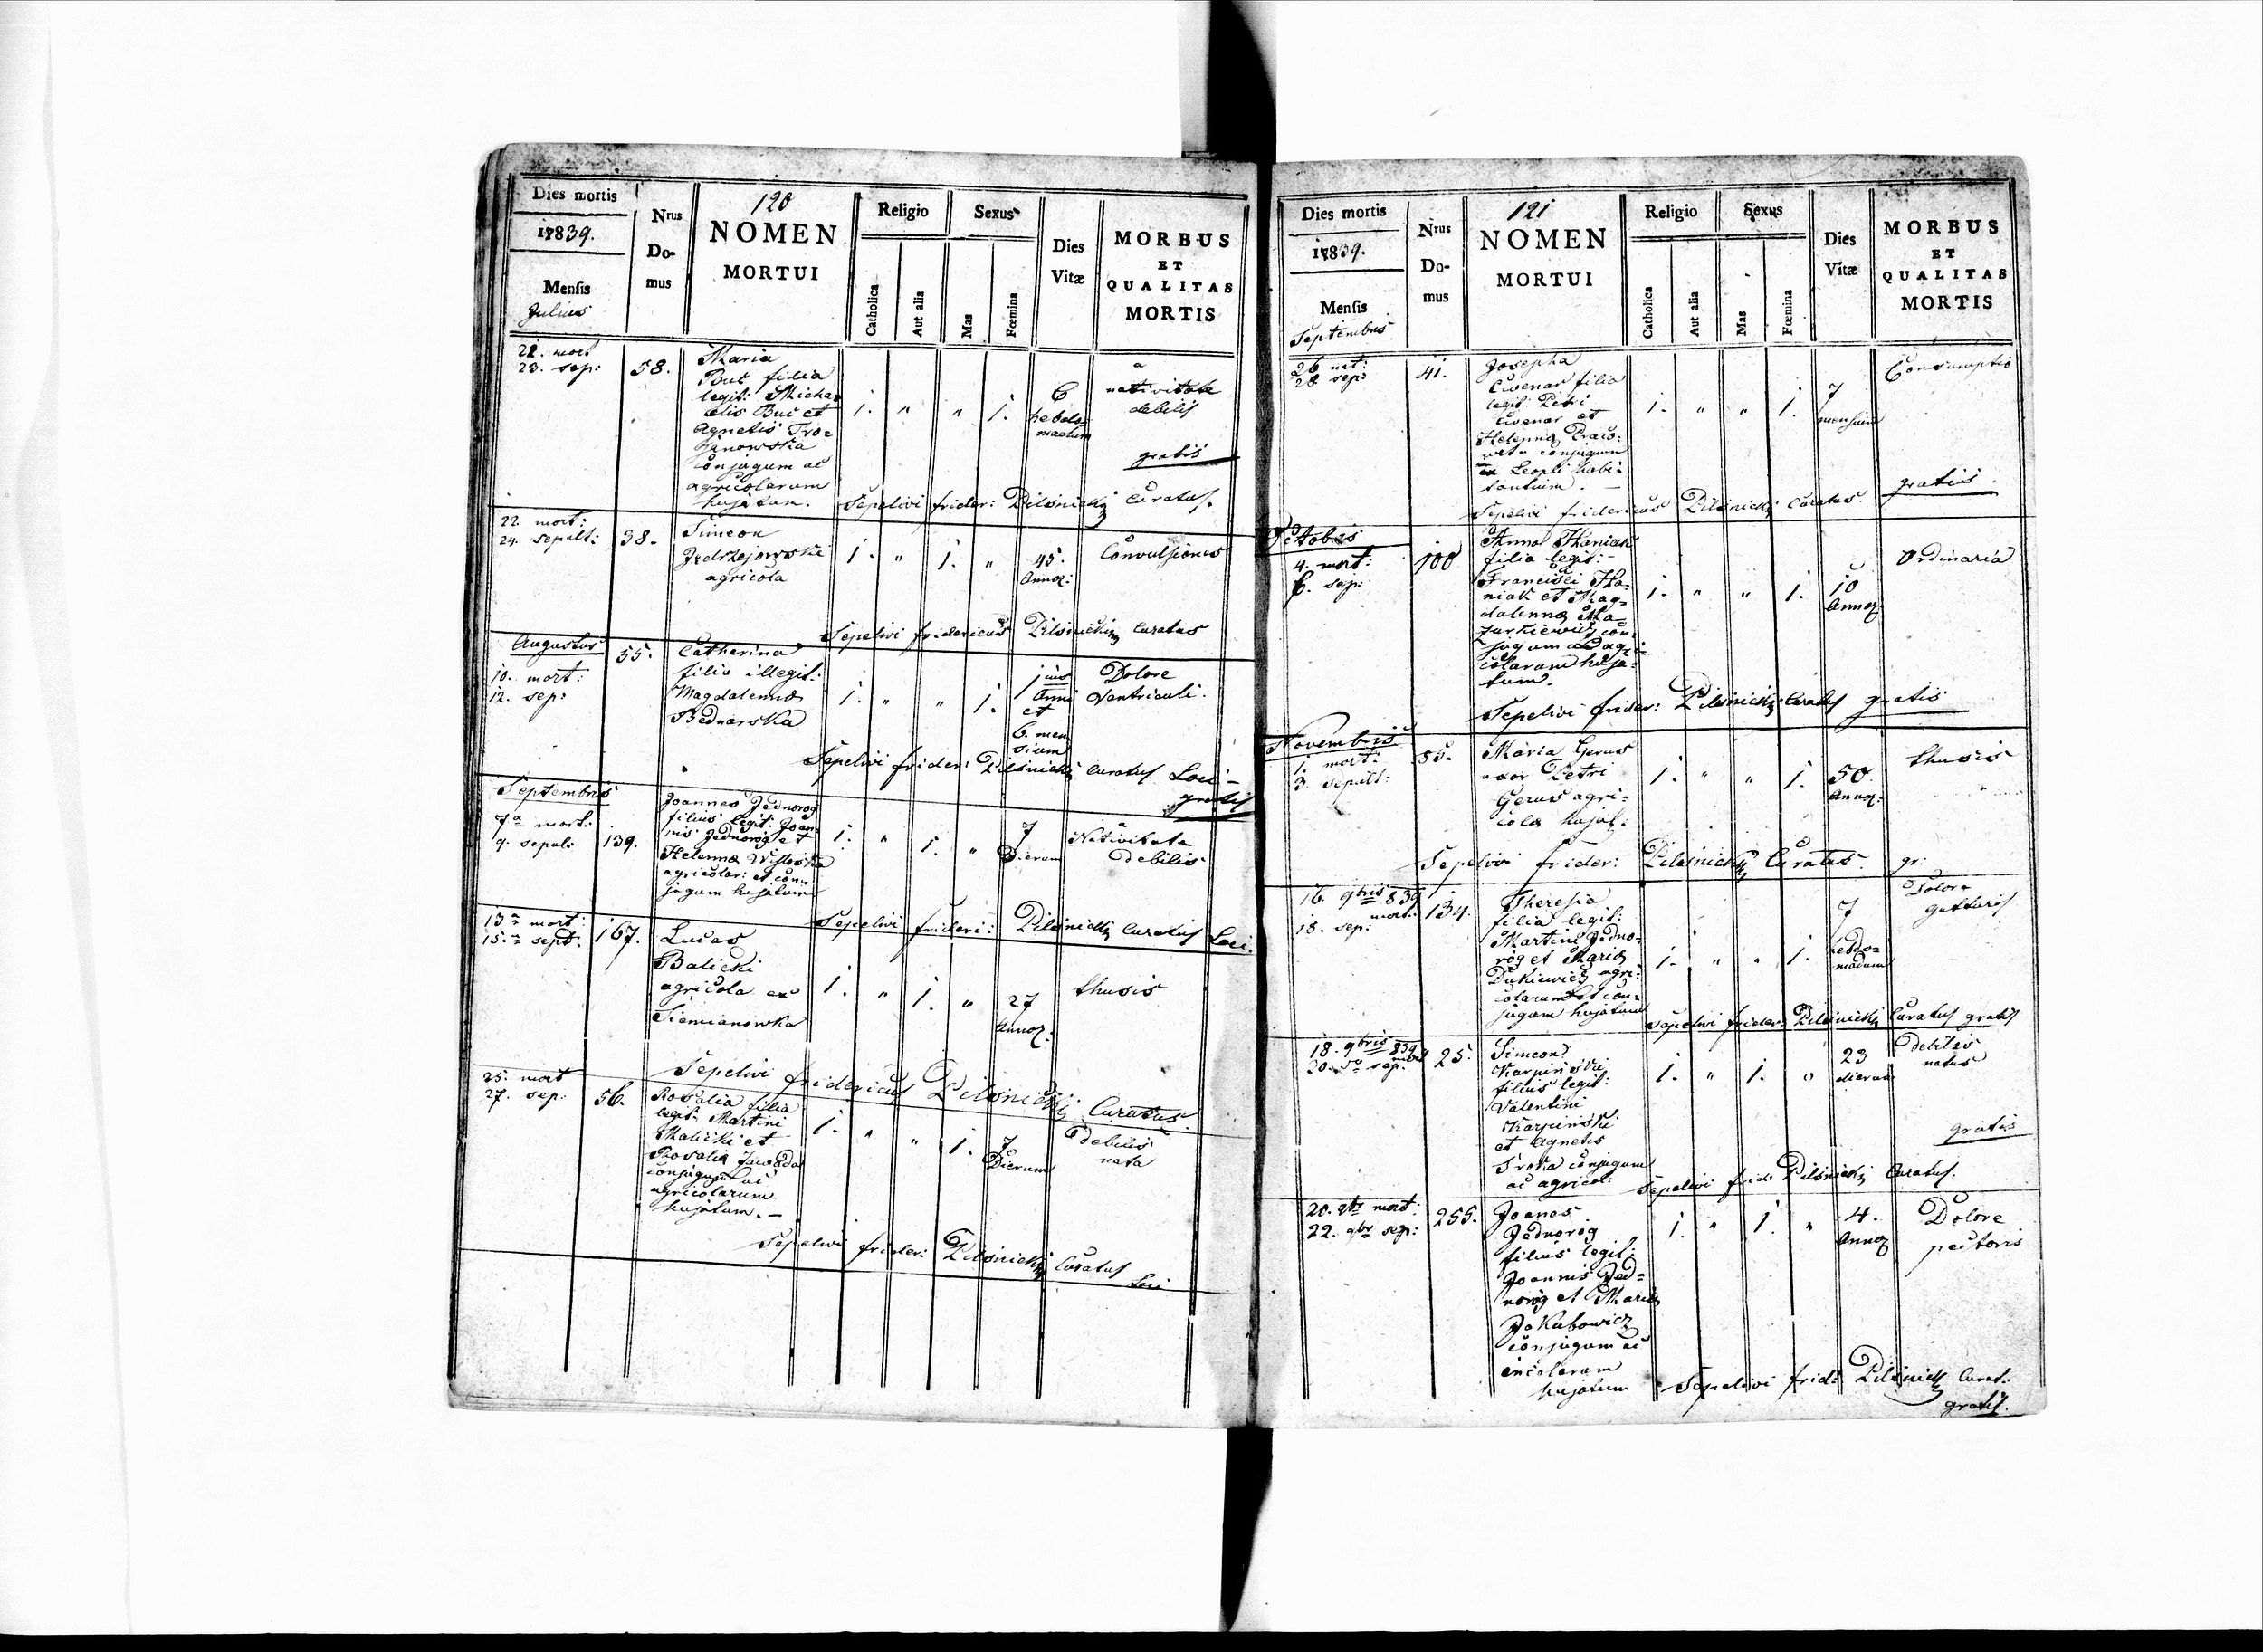 Dies mortis
1839.
Mensis
Julius
Nrus
Do-
mus
120
NOMEN
MORTUI
Religio
Catholica
Aut alia
Sexus
Mas
Fœmina
Dies
Vitæ
MORBUS
ET
QUALITAS
MORTIS
22. mort
23. sep:
58.
Maria
Buć filia
legit: Micha
elis Buć et
Agnetis Tro=
janowska
conjugum ac
agricolarum
hujatum.
1. " " 1.
6
hebdo-
madum
a
nativitate
debilis
gratis
Sepelivi frider: Pilsnicki Curatus.
22. mort:
24. sepult:
38.
Simeon
Jędrzejowski
agricola
1. " 1. "
45.
Annor:
Convulsiones
Sepelivi fridericus Pilsnicki Curatus
Augustus
10. mort:
12. sep:
55.
Catherina
filia illegit:
Magdalenna
Bednarska
1. " " 1.
1 ius
Anni
et
6. men
sium
Dolore
Ventriculi.
Sepelivi frider: Pilsnicki Curatus Loci -
gratis
Septembris
7a mort:
9. sepult:
139.
Joannes Jednorog
filius legit: Joan
nis Jednorog et
Helenna
agricolar: et con=
jugum hujatum
1. " 1. "
7
Dierum
a
Nativitate
Debilis
Sepelivi frideri: Pilsnicki Curatus Loci.
13a mort:
15a sept:
167.
Lucas
Balicki
agricola ex
Siemianowka
1. " 1. "
27
Annor:
thusis
Sepelivi fridericus Pilsnicki Curatus.
25. mort
27. sep:
56.
Rosalia filia
legit: Martini
Malicki et
Rosalia Zawada
conjugum ac
agricolarum
hujatum. -
1. " " 1.
7
Dierum
debilis
nata
Sepelivi frider: Pilsnicki Curatus
Loci
Dies mortis
1839.
Mensis
Septembris
Nrus
Do-
mus
121
NOMEN
MORTUI
Religio
Catholica
Aut alia
Sexus
Mas
Fœmina
Dies
Vitæ
MORBUS
ET
QUALITAS
MORTIS
28 sep:
41.
Josepha
Cwenar filia
legit: Petri
Cwenar et
Helenna
conjugum
Leopli habi=
tantium. -
1. " " 1.
7
mensium
Consumptio
gratis.
Sepelivi fridericus Pilsnicki Curatus
Octobris
4. mort:
6. sep:
100
Anna Haniak
filia legit:
Francisci Ha-
niak et Mag-
dalenna Ma-
zurkiewicz con=
jugum ac agri-
colarum huja-
tum.
1. " " 1.
10
Annor
Ordinaria
Sepelivi frider: Pilsnicki Curatus gratis
Novembris
1. mort:
3. sepult:
85.
Maria Gerus
uxor Petri
Gerus agri=
cola hujat:
1. " " 1.
50.
Annor:
thusis
Sepelivi frider: Pilsnicki Curatus. gr:
16. 9bris 839
mort:
18. sep:
134.
Theresia
filia legit:
Martini Jedno-
rog et Maria
Dukiewicz agri:
colarum et con=
jugum hujatum
1. " " 1.
7
hebdo=
madum
Dolore
Gutturis
Sepelivi frider: Pilsnicki Curatus gratis
18. 9bris 839
mort
20. sep:
25.
Simeon
Karpinski
filius legit:
Valentini
Karpinski
et Agnetis
Sroka conjugum
ac agricol:
1. " 1. "
23
dierum
debilis
natus
gratis
Sepelivi frid: Pilsnicki Curatus.
20. mort:
22. 9br sep:
255.
Joanes
Jednorog
filius legit:
Joannis Jed=
norog et Maria
Jakubowicz
conjugum ac
incolarum
hujatum
1. " 1. "
4.
Annor
Dolore
pectoris
Sepelivi frid: Pilsnicki Curat:
gratis.